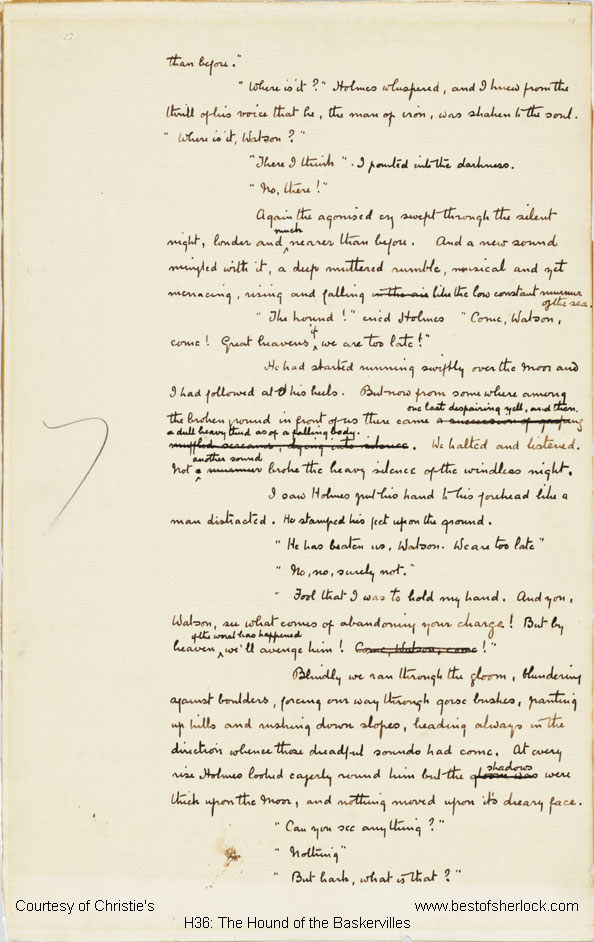 than before."
"Where is it?" Holmes whispered, and I knew from the
thrill of his voice that he, the man of iron, was shaken to the soul.
"Where is it, Watson?"
"There I think". I pointed into the darkness.
"No, there!"
Again the agonised cry swept through the silent
much
night, louder and nearer than before. And a new sound
mingled with it, a deep muttered rumble, musical and yet
menacing, rising and falling in the air like the low constant murmur
of the sea.
"The hound!" cried Holmes "Come, Watson,
if
come! Great heavens we are too late!"
He had started running swiftly over the Moor and
I had followed at his heels. But now from somewhere among
one last despairing yell, and then,
the broken ground in front of us there came a succession of
a dull heavy thud as of a falling body.
muffled screams, dying into silence. We halted and listened.
another sound
Not a murmur broke the heavy silence of the windless night.
I saw Holmes put his hand to his forehead like a
man distracted. He stamped his feet upon the ground.
"He has beaten us, Watson. We are too late"
"No, no, surely not."
"Fool that I was to hold my hand. And you,
Watson, see what comes of abandoning your charge! But by
if the worst has happened
heaven, we'll avenge him! Come, Watson, come!"
Blindly we ran through the gloom, blundering
against boulders, forcing our way through gorse bushes, panting
up hills and rushing down slopes, heading always in the
direction whence those dreadful sounds had come. At every
shadows
rise Holmes looked eagerly round him but the gloom was were
thick upon the Moor, and nothing moved upon it's dreary face.
"Can you see anything?"
"Nothing"
"But hark, what is that?"
Courtesy of Christie's
www.bestofsherlock.com
H36: The Hound of the Baskervilles